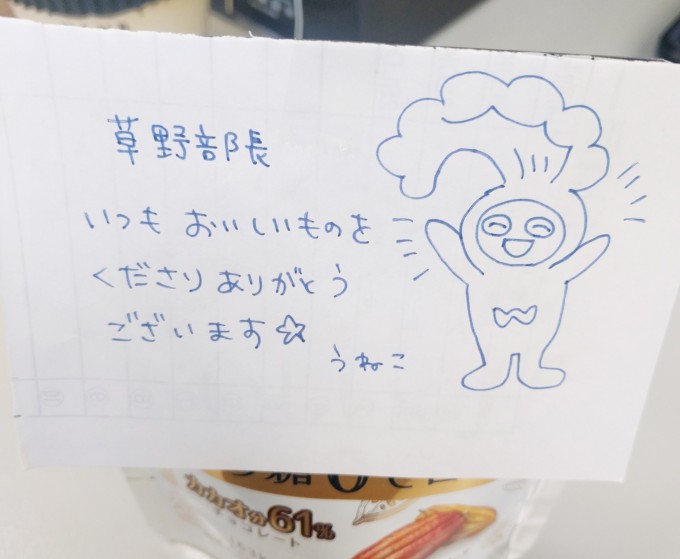 草野部長
いつも おいしいものを
くださり ありがとう
ございます☆
うねこ
カカオ分61%
チョコレート